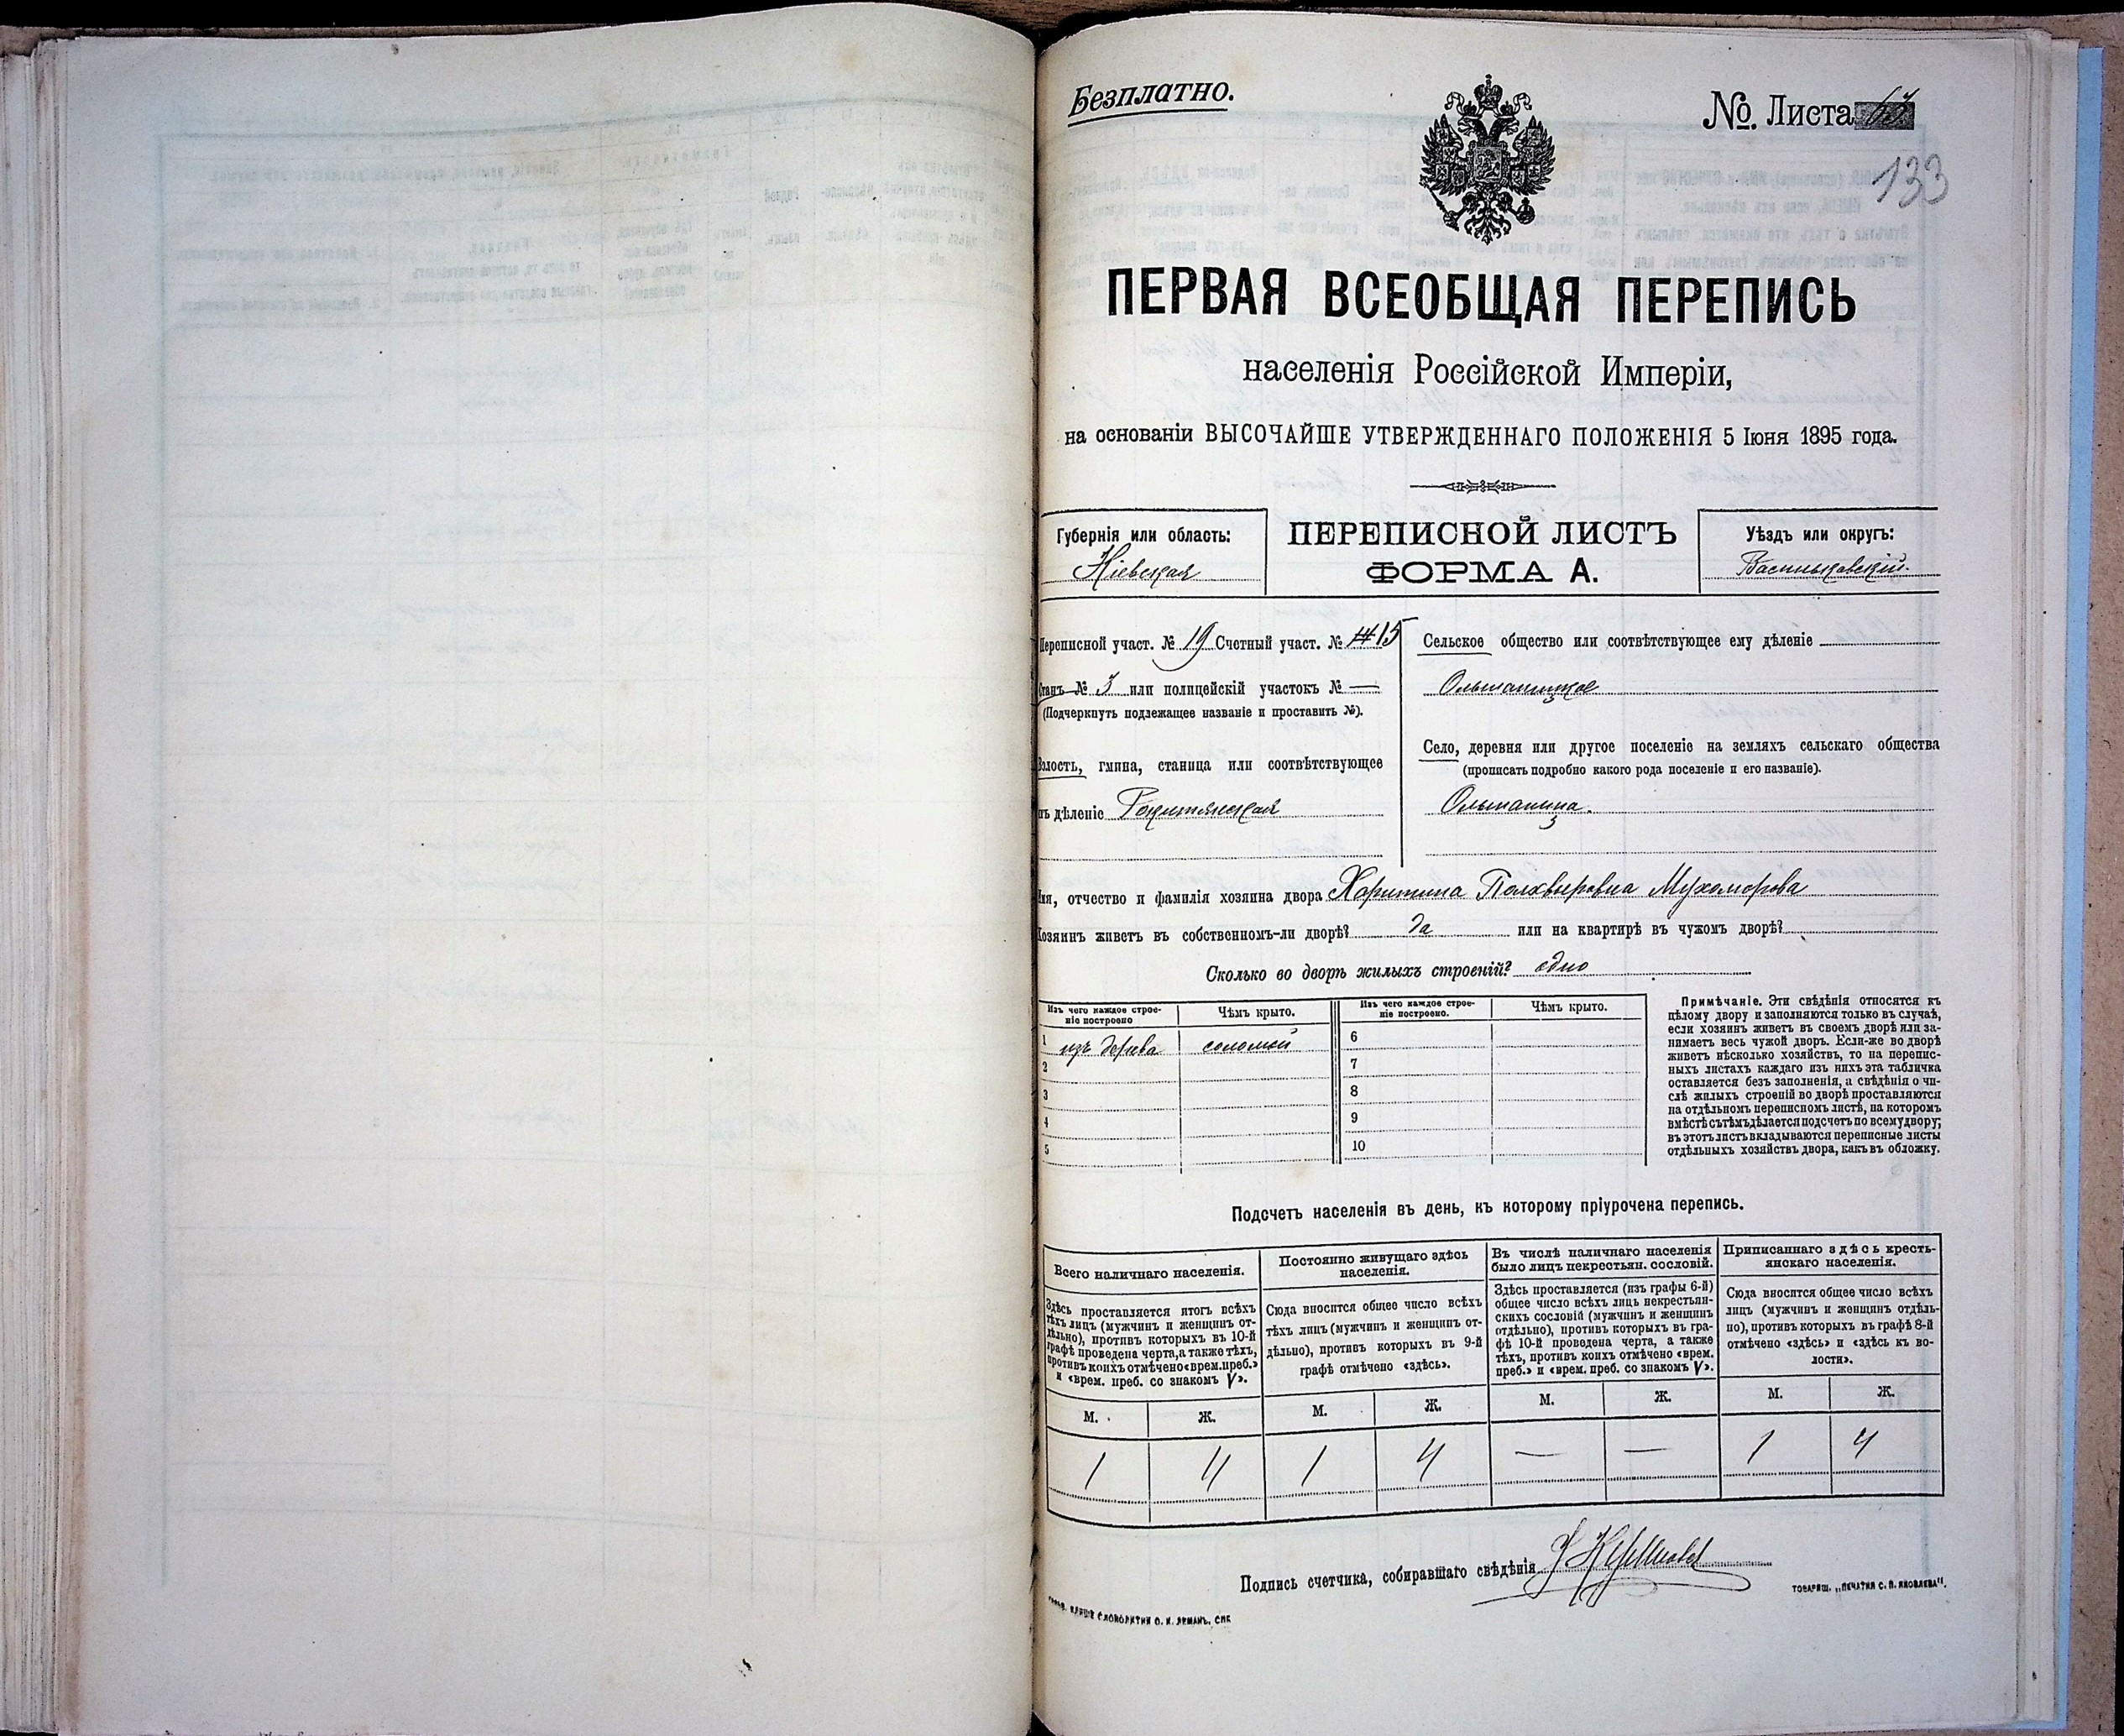 Безплатно.
№. Листа 63.
133
ПЕРВАЯ ВСЕОБЩАЯ ПЕРЕПИСЬ
населенія Россійской Имперіи,
на основаніи ВЫСОЧАЙШЕ УТВЕРЖДЕННАГО ПОЛОЖЕНІЯ 5 Іюня 1895 года.
Губернія или область:
Кіевская
ПЕРЕПИСНОЙ ЛИСТЪ
ФОРМА А.
Уѣздъ или округъ:
Васильковскій.
Переписной участ. № 19 Счетный участ. № 15
Станъ № 3 или полицейскій участокъ № —
(Подчеркнуть подлежащее названіе и проставить №).
Волость, гмина, станица или соотвѣтствующее
имъ дѣленіе Рокитянская
Сельское общество или соотвѣтствующее ему дѣленіе
Ольшаницкое
Село, деревня или другое поселеніе на земляхъ сельскаго общества
(прописать подробно какого рода поселеніе и его названіе).
Ольшаница.
Имя, отчество и фамилія хозяина двора Харитина Полхвыровна Мухоморова
Хозяинъ живетъ въ собственномъ-ли дворѣ? да или на квартирѣ въ чужомъ дворѣ?
Сколько во дворѣ жилыхъ строеній? одно
Изъ чего каждое строе-
ніе построено
Чѣмъ крыто.
Изъ чего каждое строе-
ніе построено.
Чѣмъ крыто.
1 изъ дерева соломой 6
2 7
3 8
4 9
5 10
Примѣчаніе. Эти свѣдѣнія относятся къ
цѣлому двору и заполняются только въ случаѣ,
если хозяинъ живетъ въ своемъ дворѣ или за-
нимаетъ весь чужой дворъ. Если-же во дворѣ
живетъ нѣсколько хозяйствъ, то на перепис-
ныхъ листахъ каждаго изъ нихъ эта табличка
оставляется безъ заполненія, а свѣдѣнія о чи-
слѣ жилыхъ строеній во дворѣ проставляются
на отдѣльномъ переписномъ листѣ, на которомъ
вмѣстѣ съ тѣмъ дѣлается подсчетъ по всему двору;
въ этотъ листъ вкладываются переписные листы
отдѣльныхъ хозяйствъ двора, какъ въ обложку.
Подсчетъ населенія въ день, къ которому пріурочена перепись.
Всего наличнаго населенія.
Здѣсь проставляется итогъ всѣхъ
тѣхъ лицъ (мужчинъ и женщинъ от-
дѣльно), противъ которыхъ въ 10-й
графѣ проведена черта, а также тѣхъ,
противъ коихъ отмѣчено «врем. преб.»
и «врем. преб. со знакомъ V».
Постоянно живущаго здѣсь
населенія.
Сюда вносится общее число всѣхъ
тѣхъ лицъ (мужчинъ и женщинъ от-
дѣльно), противъ которыхъ въ 9-й
графѣ отмѣчено «здѣсь».
Въ числѣ наличнаго населенія
было лицъ некрестьян. сословій.
Здѣсь проставляется (изъ графы 6-й)
общее число всѣхъ лицъ некрестьян-
скихъ сословій (мужчинъ и женщинъ
отдѣльно), противъ которыхъ въ гра-
фѣ 10-й проведена черта, а также
тѣхъ, противъ коихъ отмѣчено «врем.
преб.» и «врем. преб. со знакомъ V».
Приписаннаго здѣсь кресть-
янскаго населенія.
Сюда вносится общее число всѣхъ
лицъ (мужчинъ и женщинъ отдѣль-
но), противъ которыхъ въ графѣ 8-й
отмѣчено «здѣсь» и «здѣсь къ во-
лости».
М. Ж. М. Ж. М. Ж. М. Ж.
1 4 1 4 — — 1 4
Подпись счетчика, собиравшаго свѣдѣнія
СЛОВОЛИТНИ О. И. ЛЕМАНЪ, СПБ
ТОВАРИЩ. „ПЕЧАТНЯ С. П. ЯКОВЛЕВА“.